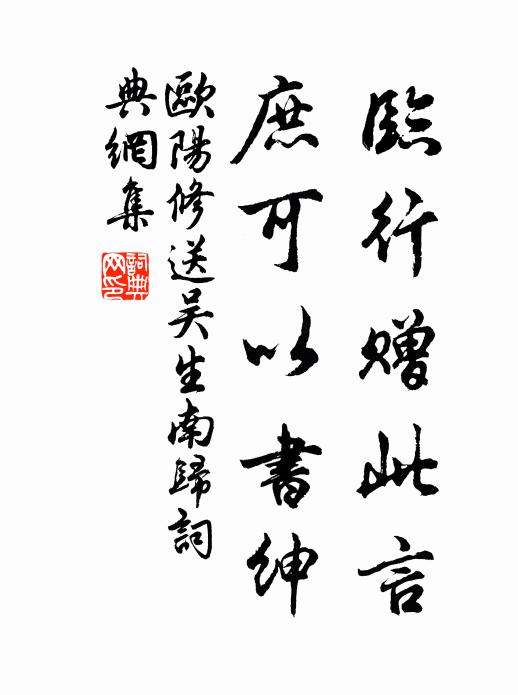 臨行贈此言
庶可以書紳
歐陽修送吴生南歸詞
典網集
詞典網印